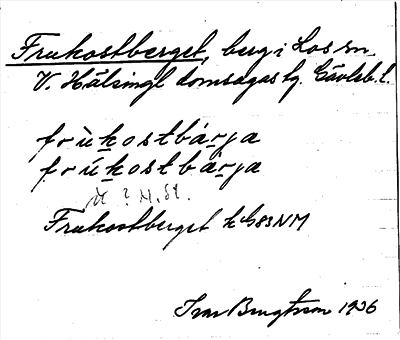 Frukostberget, berg i Los sn.
V. Hälsingl. domsagas tg. Gävleb. l.
frùkostbárja
frúkostbárja
? M. St.
Frukostberget k G83NM
Ivar Bengtsson 1936